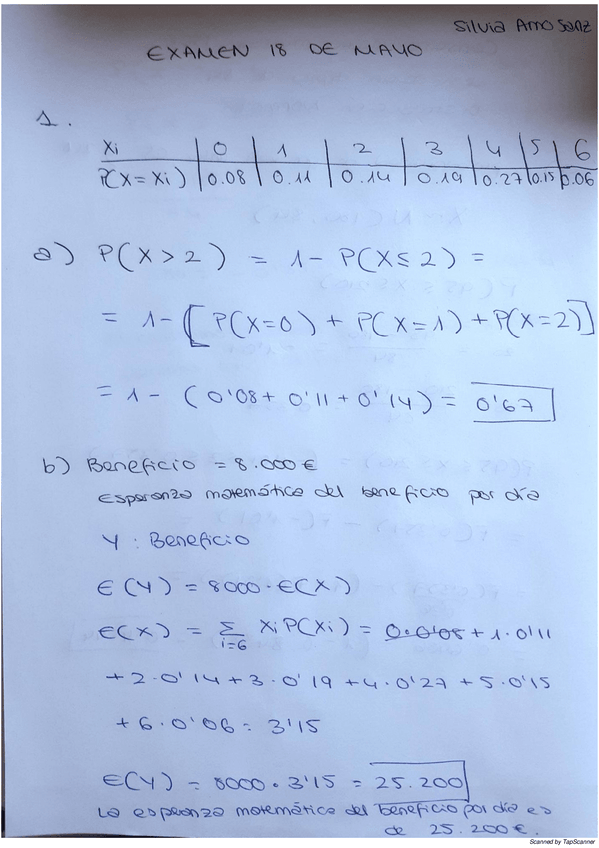 Silvia Amo Sanz
EXAMEN 18 DE MAYO
1.
Xi | 0 | 1 | 2 | 3 | 4 | 5 | 6
P(X = Xi) | 0.08 | 0.11 | 0.14 | 0.19 | 0.27 | 0.15 | 0.06
a) P(X > 2) = 1 - P(X ≤ 2) =
= 1 - [P(X=0) + P(X=1) + P(X=2)]
= 1 - (0'08 + 0'11 + 0'14) = 0'67
b) Beneficio = 8.000 €
Esperanza matemática del beneficio por día
Y : Beneficio
E(Y) = 8000 · E(X)
E(X) = Σ i=6 Xi P(Xi) = 0·0'08 + 1·0'11
+ 2·0'14 + 3·0'19 + 4·0'27 + 5·0'15
+ 6·0'06 = 3'15
E(Y) = 8000 · 3'15 = 25.200
La esperanza matemática del beneficio por día es
de 25.200 €.
Scanned by TapScanner